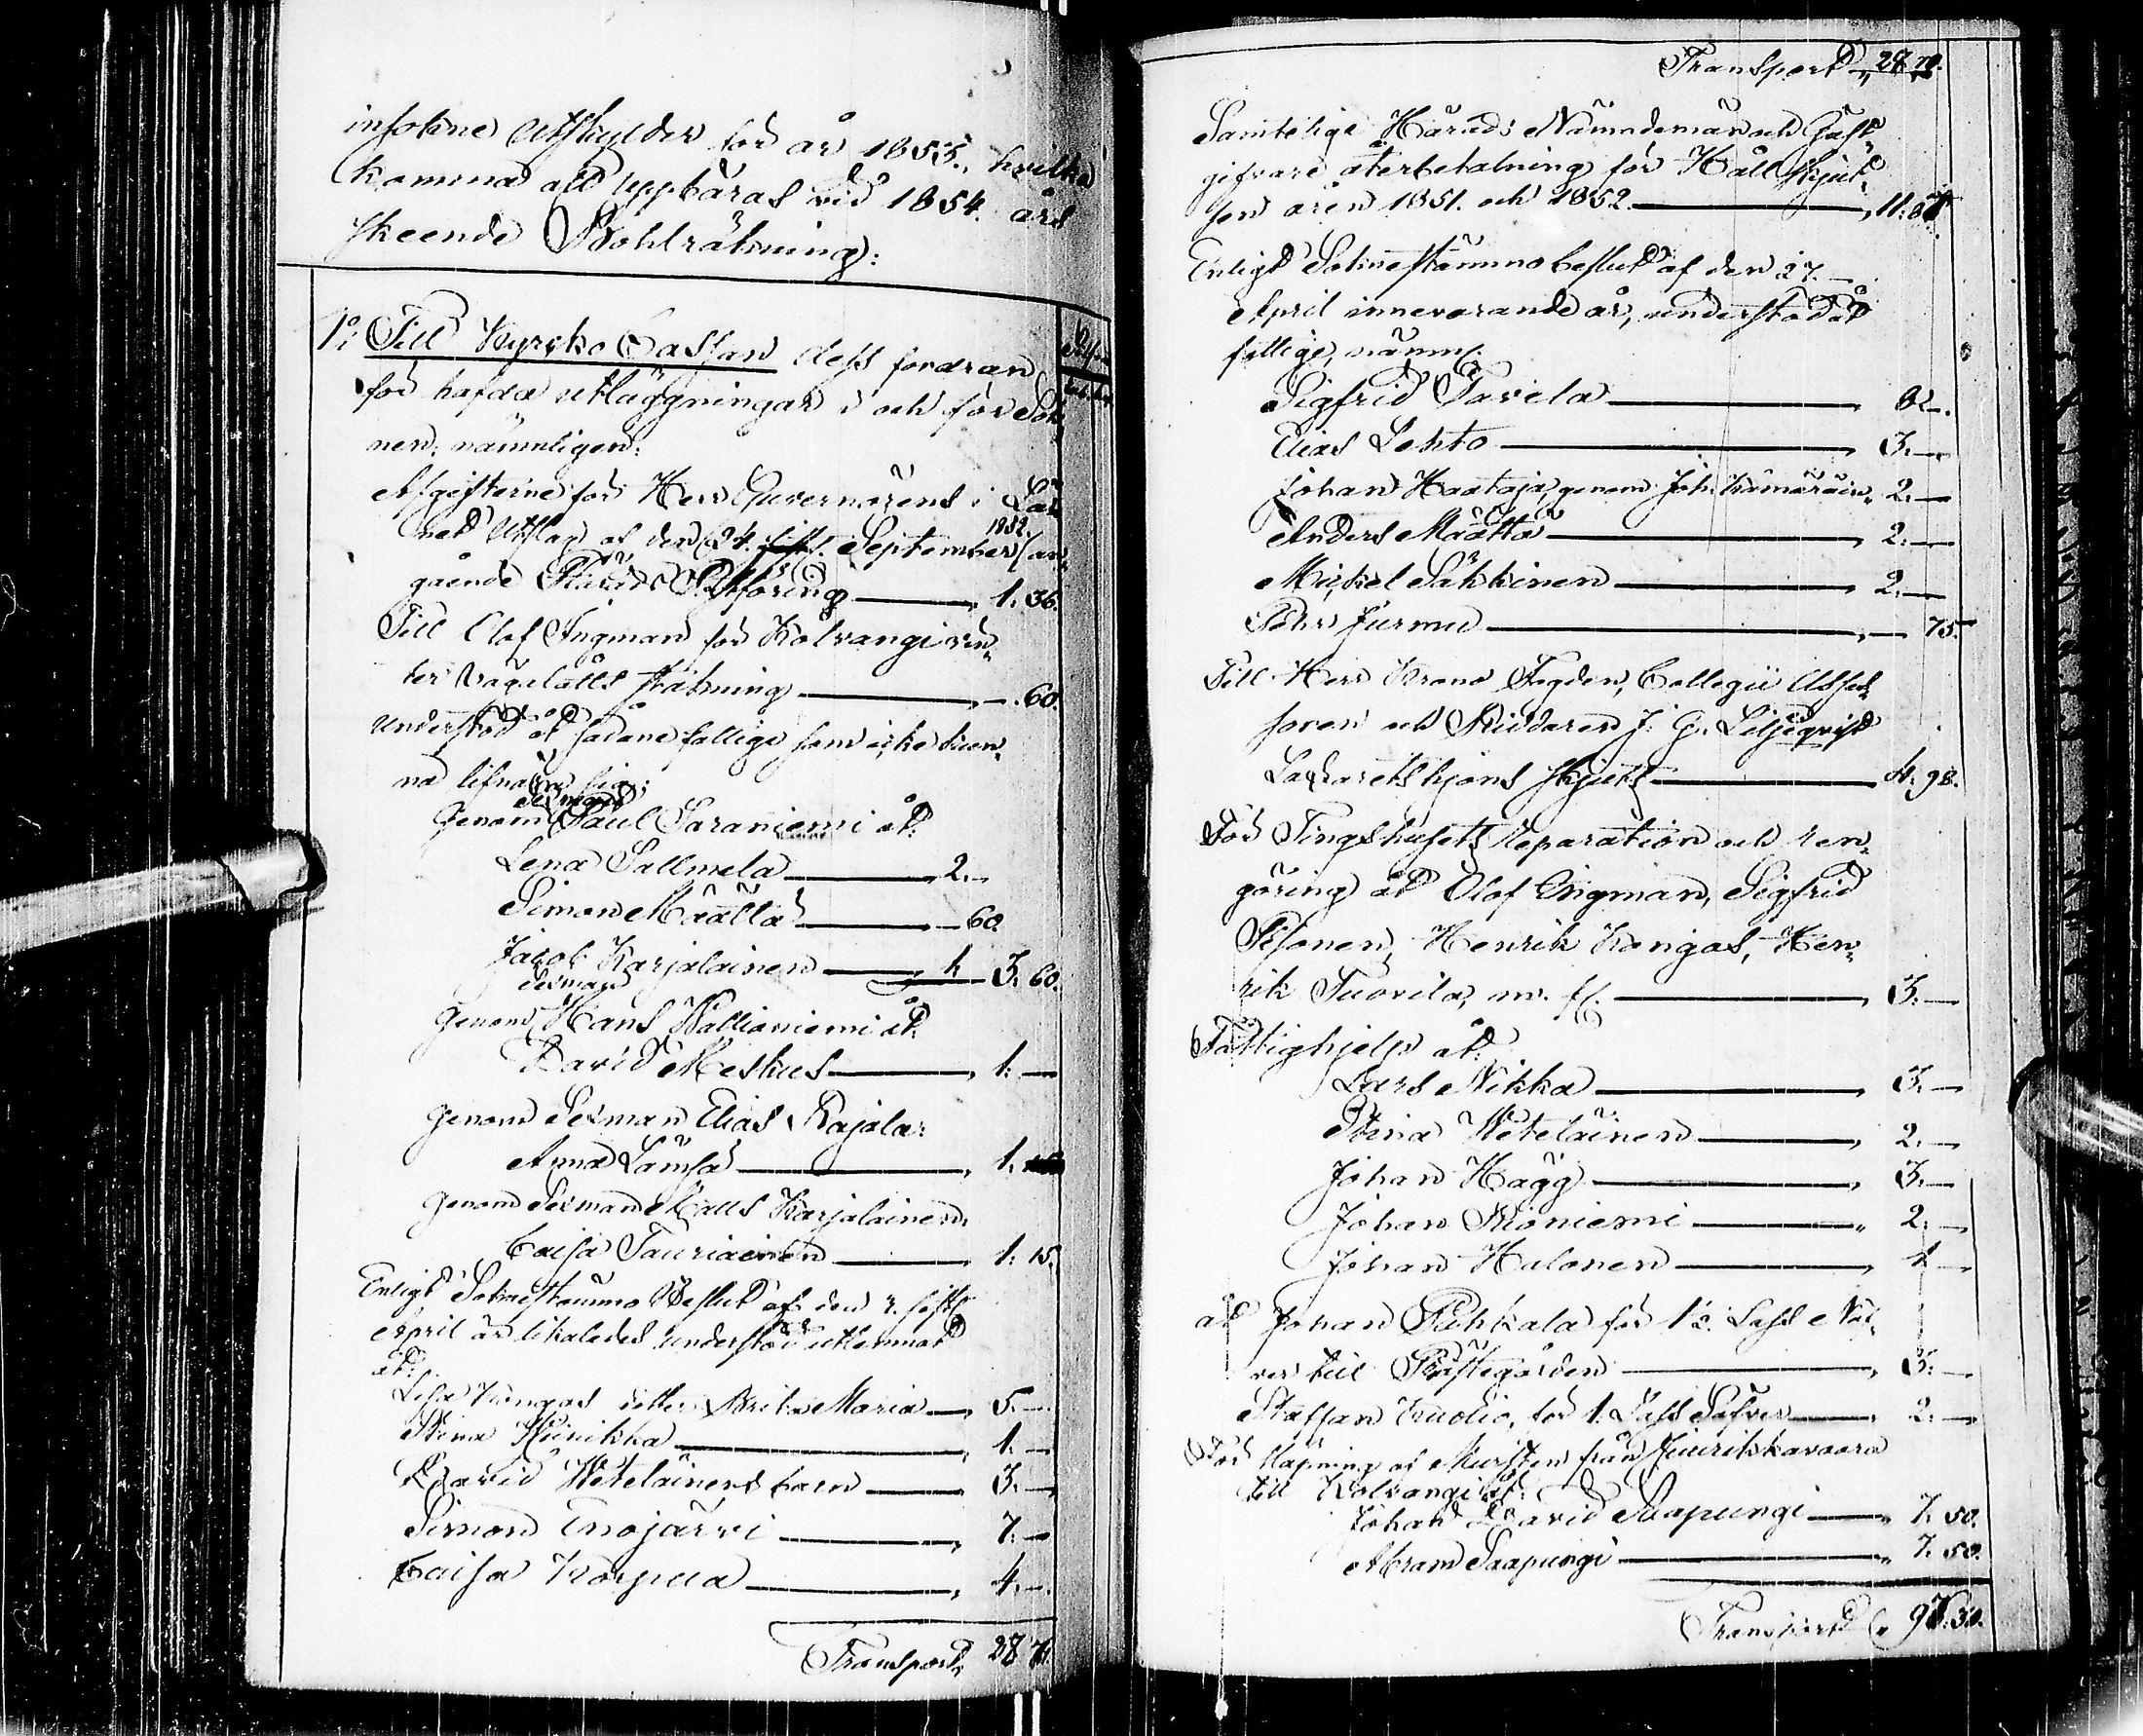 insokne Utskylder för år 1853., hvilka
komma att uppbäras vid 1854. års
skeende Bohlräkning:
1o: Till Kyrko Cassan dess fordran
för hafda utläggningar i och för Sok
nen, nämnligen:
Afgifterne för Herr Guvernörens i Lä-
net Utslag af den 24. September 1852. an-
gående 1. 36.
Till Olof Ingman för Kolvangi vin-
ter vägalätts stakning —. 60.
Understöd åt sådane fattige som icke kun-
na lifnära sig:
Genom Sexman Paul Saraniemi åt:
Lena Sallmela 2. —
Simon Määttä — 60
Jacob Karjalainen 1. 3. 60.
Genom Sexman Hans Kallioniemi åt:
David Meskus 1. —
Genom Sexman Elias Rajala:
Anna Lämsä 1.
Genom Sexman Matts Karjalainen
Caisa Tauriainen 1. 15.
Enligt Sockenstämmo Beslut af den
April är likaledes understöd utlemnat
åt:
Lisa Kangas dotter Brita Maria 5. —
Stina Hiirikka 1. —
David Weteläinens barn 3. —
Simon Enojärvi 7. —
Caisa Korpua 4. —
Transport 28 71.
Transport 28 70.
Samtelige Härads Nämndemän och Gäst-
gifvare återbetalning för Håll skjut-
sen åren 1851. och 1852. 11. 87.
Enligt Sokne stämmo beslut af den 27.
April innevarande år, understöd åt
fattige, nämnl.
Sigfrid Tavela 6. —
Elias Lehto 3. —
Johan Haataja, genom Joh. Kämäräin. 2. —
Anders Määttä 2. —
Mickel Säkkinen 2. —
Petter Jurmu — 75.
Till Herr Krono Fogden, Collegii Asses-
soren och Riddaren J. G. Liljeqvist
Lazaretshjons skjuts 4. 98.
För Tingshusets Reparation och ren-
göring åt Olof Engman, Sigfrid
Pesonen, Henrik Kangas, Hen-
rik Tuovila, m. fl. 3. —
Fattighjelp åt:
Lars Nikka 3. —
Stina Weteläinen 2. —
Johan Hägg 3. —
Johan Kioniemi 2. —
Johan Halonen 1 —
åt Johan Puhkala för 1½ Lass Näf-
ver till Prästegården 3. —
Staffan Kuolio, för 1. Lass Näfver 2. —
För släpning af Mursten från Hiirikkavaara
till Kolvangi åt:
Johan David Saapungi 7. 50.
Abram Saapungi 7. 50.
Transport 97. 30.